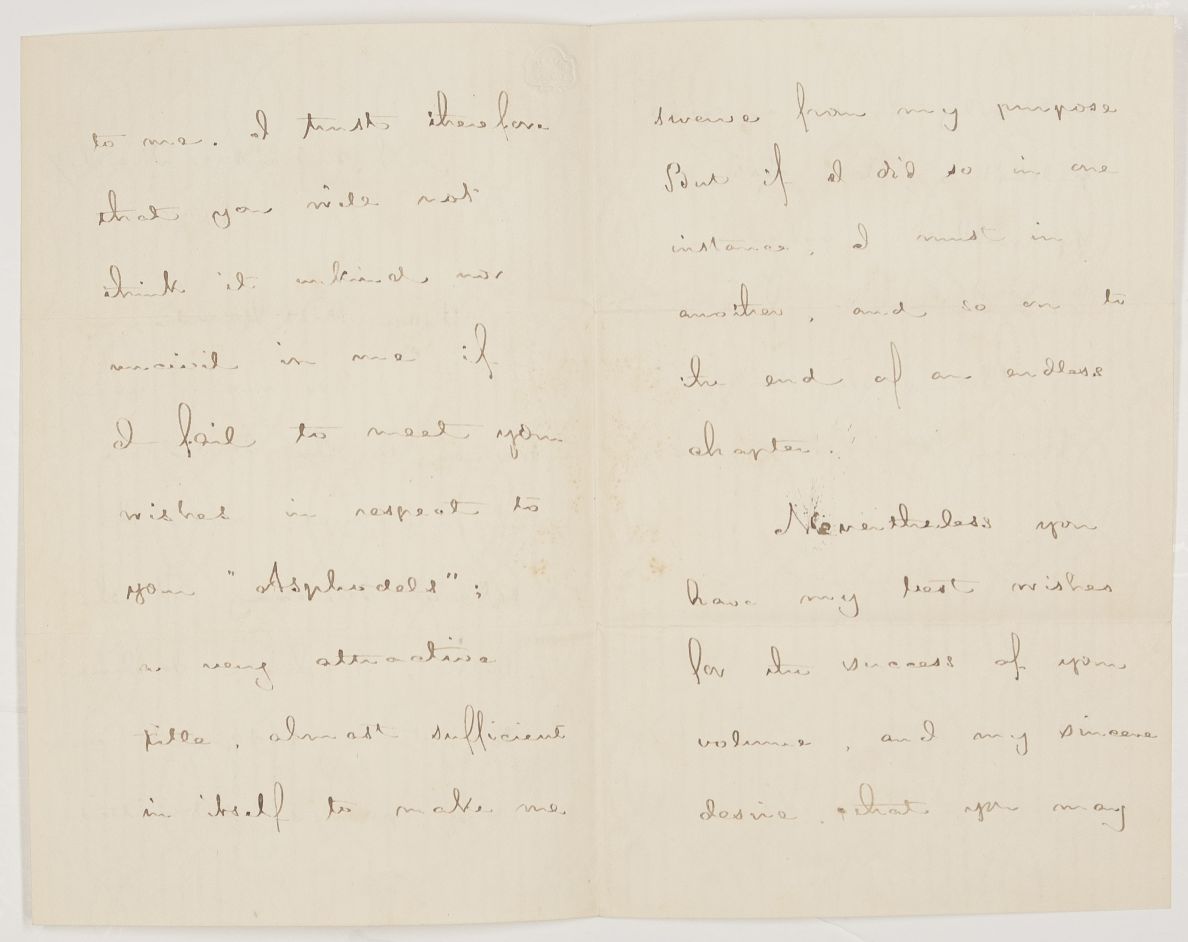 to me. I trust therefore
that you will not
think it unkind nor
uncivil in me if
I fail to meet your
wishes in respect to
your "Asphodels";
a very attractive
title, almost sufficient
in itself to make me
swerve from my purpose
But if I did so in one
instance, I must in
another, and so on to
the end of an endless
chapter.
Nevertheless you
have my best wishes
for the success of your
volume, and my sincere
desire that you may